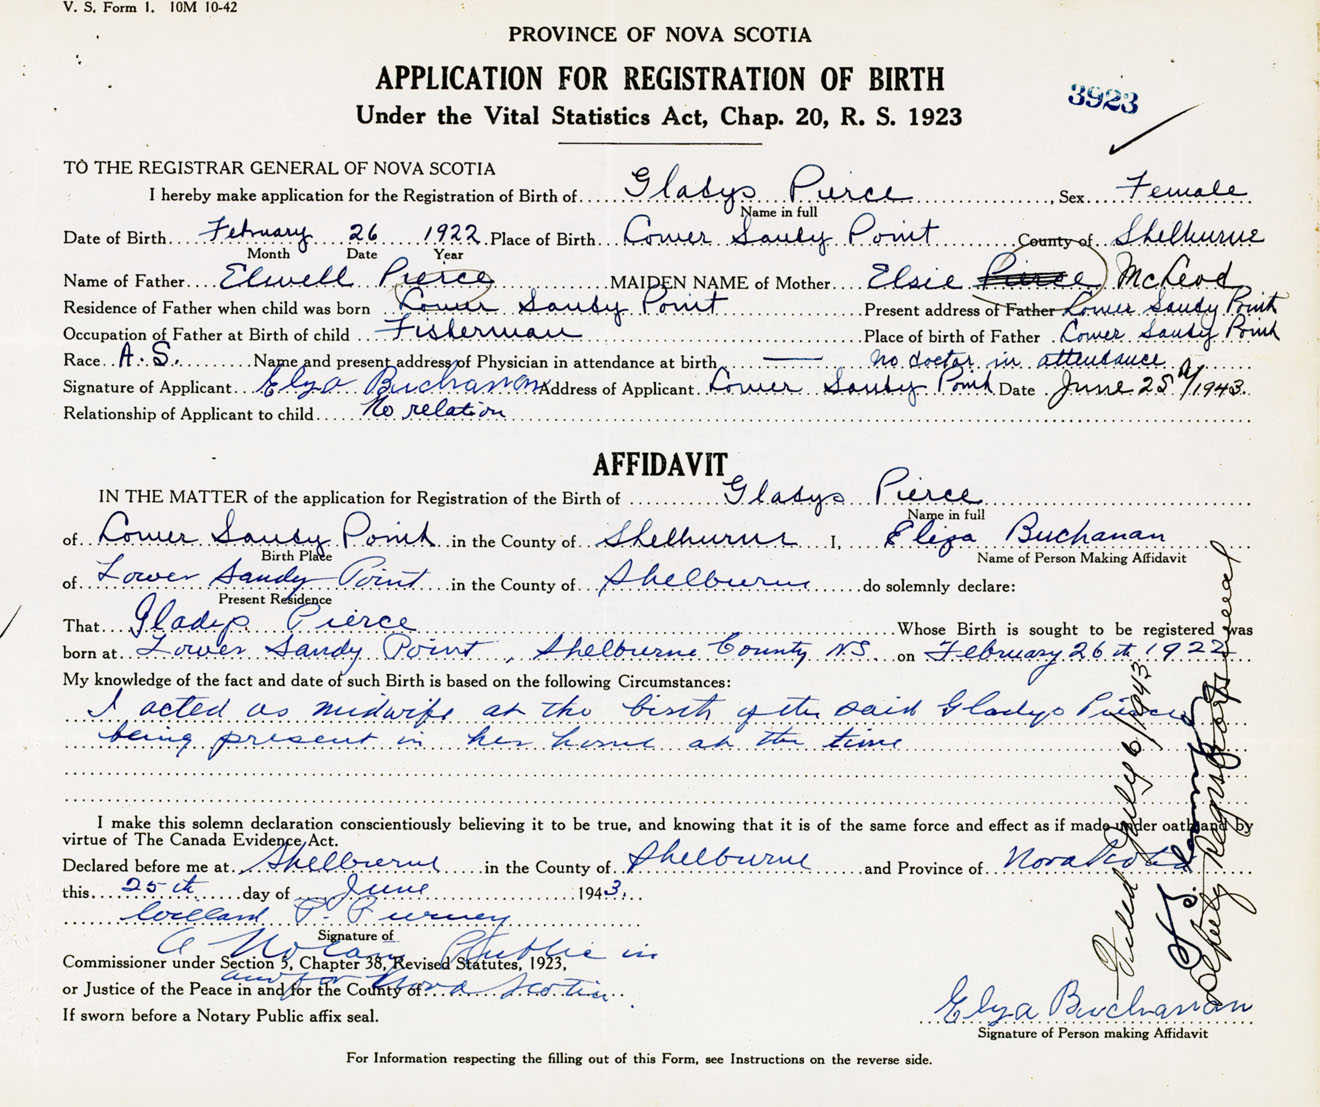 V. S. Form 1. 10M 10-42
PROVINCE OF NOVA SCOTIA
APPLICATION FOR REGISTRATION OF BIRTH
3923
Under the Vital Statistics Act, Chap. 20, R. S. 1923
TO THE REGISTRAR GENERAL OF NOVA SCOTIA
I hereby make application for the Registration of Birth of Gladys Pierce, Sex Female
Name in full
Date of Birth February 26 1922 Place of Birth Lower Sandy Point County of Shelburne
Month Date Year
Name of Father Elwell Pierce MAIDEN NAME of Mother Elsie Pierce McLeod
Residence of Father when child was born Lower Sandy Point Present address of Father Lower Sandy Point
Occupation of Father at Birth of child Fisherman Place of birth of Father Lower Sandy Point
Race A.S. Name and present address of Physician in attendance at birth — no doctor in attendance
Signature of Applicant Elyza Buchanan Address of Applicant Lower Sandy Point Date June 25th/1943.
Relationship of Applicant to child No relation
AFFIDAVIT
IN THE MATTER of the application for Registration of the Birth of Gladys Pierce
Name in full
of Lower Sandy Point in the County of Shelburne I, Eliza Buchanan
Birth Place Name of Person Making Affidavit
of Lower Sandy Point in the County of Shelburne do solemnly declare:
Present Residence
That Gladys Pierce Whose Birth is sought to be registered was
born at Lower Sandy Point, Shelburne County N.S. on February 26th 1922
My knowledge of the fact and date of such Birth is based on the following Circumstances:
I acted as midwife at the birth of the said Gladys Pierce
being present in her home at the time
I make this solemn declaration conscientiously believing it to be true, and knowing that it is of the same force and effect as if made under oath and by
virtue of The Canada Evidence Act.
Declared before me at Shelburne in the County of Shelburne and Province of Nova Scotia
this 25th day of June 1943.
Welland P. Purney
Signature of
A Notary Public in
Commissioner under Section 5, Chapter 38, Revised Statutes, 1923,
and for Nova Scotia.
or Justice of the Peace in and for the County of
If sworn before a Notary Public affix seal.
Elyza Buchanan
Signature of Person making Affidavit
For Information respecting the filling out of this Form, see Instructions on the reverse side.
Filed July 6/1943
Deputy Registrar General